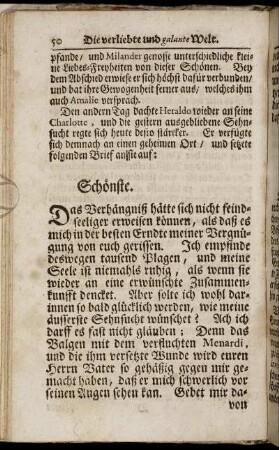 50 Die verliebte und galante Welt.
pfande/ und Milander genosse unterschiedliche klei-
ne Liebes-Freyheiten von dieser Schönen. Bey
dem Abschied erwiese er sich höchst dafür verbunden/
und bat ihre Gewogenheit ferner aus/ welches ihm
auch Amalie versprach.
Den andern Tag dachte Heraldo wieder an seine
Charlotte, und die gestern ausgebliebene Sehn-
sucht regte sich heute desto stärcker. Er verfügte
sich demnach an einen geheimen Ort/ und setzte
folgenden Brief an sie auf:
Schönste.
Das Verhängniß hätte sich nicht feind-
seeliger erweisen können, als daß es
mich in der besten Erndte meiner Vergnü-
gung von euch gerissen. Ich empfinde
deswegen tausend Plagen, und meine
Seele ist niemahls ruhig, als wenn sie
wieder an eine erwünschte Zusammen-
kunfft dencket. Aber solte ich wohl dar-
innen so bald glücklich werden, wie meine
äusserste Sehnsucht wünschet? Ach ich
darff es fast nicht gläuben; Denn das
Balgen mit dem verfluchten Menardi,
und die ihm versetzte Wunde wird euren
Herrn Vater so gehäßig gegen mir ge-
macht haben, daß er mich schwerlich vor
seinen Augen sehen kan. Gebet mir da-
von